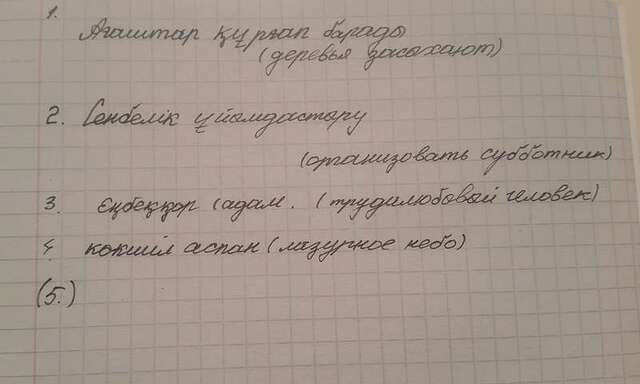 1.
Ағаштар құрғап барады
(деревья засыхают)
2. Сенбелік ұйымдастыру
(организовать субботник)
3. еңбекқор (адам. (трудилюбовый человек)
4 көкшіл аспан (лазурное небо)
(5.)